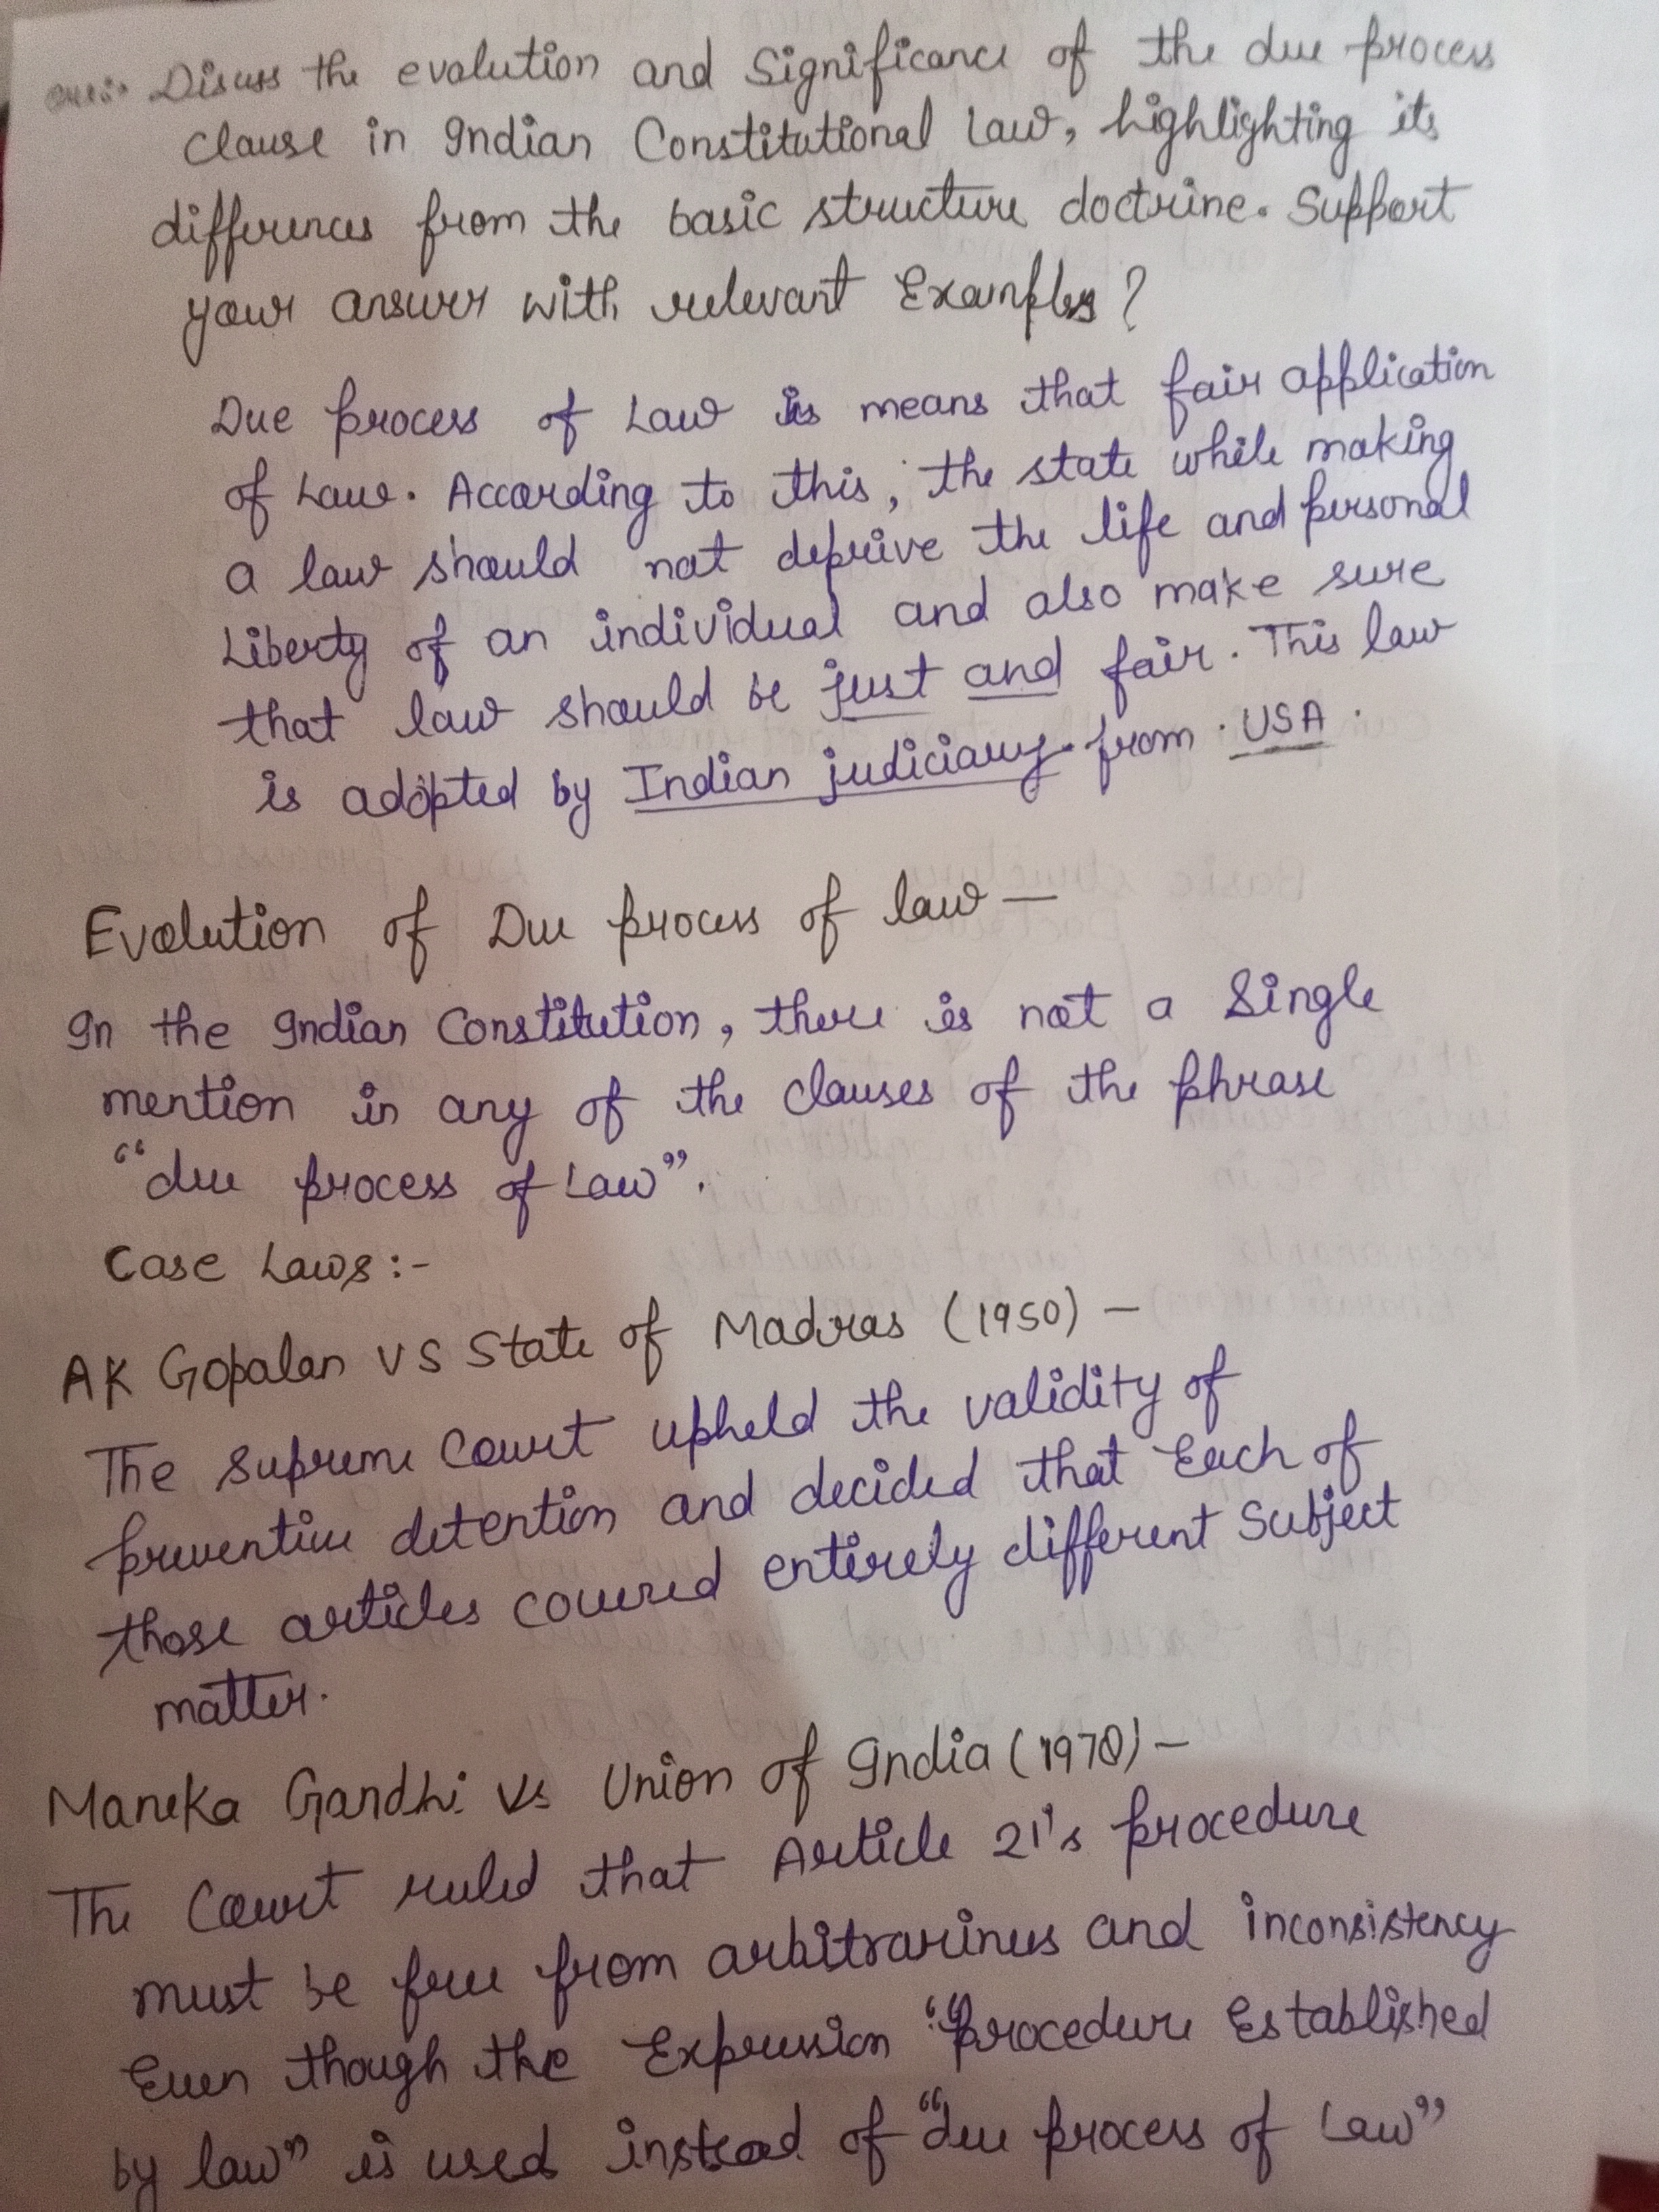 Ques:- Disuss the evolution and Significance of the due process
clause in Indian Constitutional Law, highlighting its
differences from the basic structure doctrine. Support
your answer with relevant Examples?
Due process of Law is means that fair application
of Law. According to this, the state while making
a law should not deprive the life and personal
Liberty of an individual and also make sure
that law should be just and fair. This law
is adopted by Indian judiciary from USA.
Evolution of Due process of law —
In the Indian Constitution, there is not a Single
mention in any of the clauses of the phrase
“due process of Law”.
Case Laws:-
AK Gopalan VS State of Madras (1950) —
The Supreme Court upheld the validity of
preventive detention and decided that Each of
those articles covered entirely different Subject
matter.
Maneka Gandhi Vs Union of India (1978) —
The Court ruled that Article 21's procedure
must be free from arbitrariness and inconsistency
Even though the Expression “Procedure Established
by law” is used instead of “due process of Law”